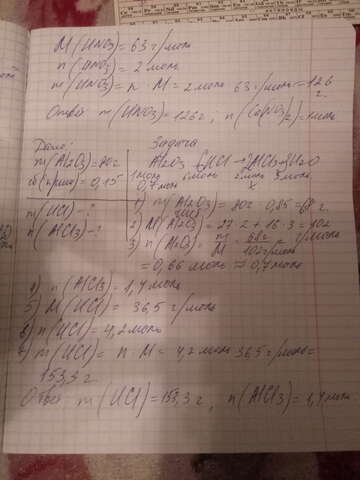 M(HNO₃) = 63 г/моль
n(HNO₃) = 2 моль
m(HNO₃) = n · M = 2 моль · 63 г/моль = 126 г
Ответ m(HNO₃) = 126г, n(Ca(NO₃)₂) = 1моль
Дано: Задача
m(Al₂O₃) = 80г Al₂O₃ + 6HCl → 2AlCl₃ + 3H₂O
ω(прим) = 0,15 1моль 6 моль 2моль 3моль
0,7моль x
m(HCl) - ? 1) m(Al₂O₃) = 80г · 0,85 = 68 г
n(AlCl₃) - ? 2) M(Al₂O₃) = 27 · 2 + 16 · 3 = 102 г/моль
3) n(Al₂O₃) = m/M = 68г/102г/моль =
= 0,66 моль ≈ 0,7 моль
4) n(AlCl₃) = 1,4 моль
5) M(HCl) = 36,5 г/моль
6) n(HCl) = 4,2 моль
7) m(HCl) = n · M = 4,2 моль · 36,5 г/моль =
153,3 г
Ответ m(HCl) = 153,3 г, n(AlCl₃) = 1,4 моль